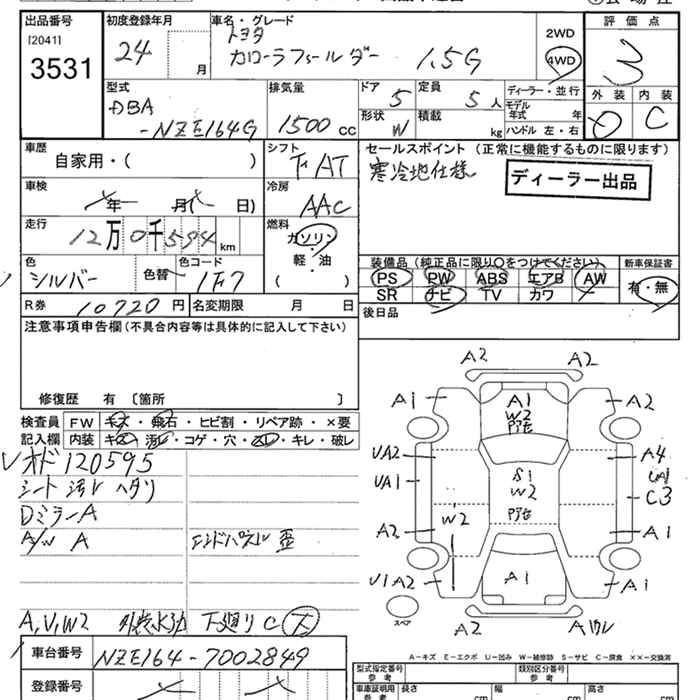 出品番号 初度登録年月 車名・グレード 評価点
[2041] トヨタ 2WD
3531 24 月 カローラフィールダー 1.5G 4WD 3
型式 排気量 ドア 定員 ディーラー・並行 外装 内装
DBA 5 5人 モデル年式 年 D C
-NZE164G 1500 CC 形状 W 積載 kg ハンドル 左・右
車歴 シフト セールスポイント (正常に機能するものに限ります)
自家用・( ) FAT 寒冷地仕様 ディーラー出品
車検 年 月( 日) 冷房 AAC
走行 12万0千594km 燃料 ガソリン
軽・油
( )
色 シルバー 色替 色コード 1F7
装備品 (純正品に限り〇をつけてください) 新車保証書
PS PW ABS エアB AW 有・無
SR ナビ TV カワ
R券 10720円 名変期限 月 日 後日品
注意事項申告欄 (不具合内容等は具体的に記入して下さい)
修復歴 有 〔箇所 〕
検査員 FW キズ・飛石・ヒビ割・リペア跡・×要
記入欄 内装 キズ・汚レ・コゲ・穴・スレ・キレ・破レ
Vオド120595
シート汚レ ヘタリ
DミラーA
A/W A エンドパネル歪
A,V,W2 下廻りC 下
車台番号 NZE164-7002849
登録番号
A2 A2
A1 A1 A2
W2
UA2 A4
UA1 S1 UA1
W2 C3
W2
A2 A1
U1 A2 A1 A1
スペア
A2
A-キズ E-エクボ U-凹み W-補修跡 S-サビ C-腐食 ××-交換済
型式指定番号 参考 類別区分番号 参考
車庫証明用 参考 長さ cm 幅 cm 高さ cm